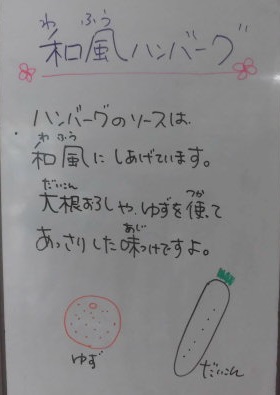 わ ふう
和風ハンバーグ
ハンバーグのソースは、
わ ふう
和風にしあげています。
だいこん つか
大根おろしや、ゆずを使って
あじ
あっさりした味つけですよ。
ゆず
だいこん